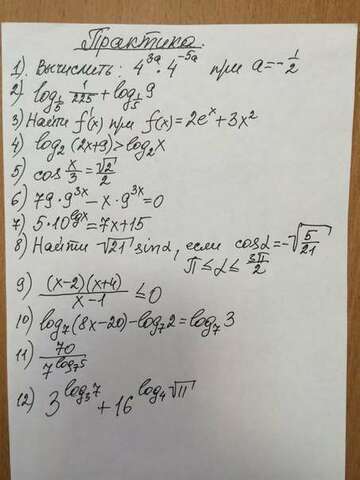 Практика.
1). Вычислить: 4^{3a} · 4^{-5a} при a = -\frac{1}{2}
2) log_{\frac{1}{5}} \frac{1}{225} + log_{\frac{1}{5}} 9
3) Найти f'(x) при f(x) = 2e^x + 3x^2
4) log_2 (2x+9) > log_2 x
5) cos \frac{x}{3} = \frac{\sqrt{2}}{2}
6) 79 · 9^{3x} - x · 9^{3x} = 0
7) 5 · 10^{lgx} = 7x + 15
8) Найти \sqrt{21} sinα, если cosα = -\sqrt{\frac{5}{21}}
π ≤ α ≤ \frac{3π}{2}
9) \frac{(x-2)(x+4)}{x-1} ≤ 0
10) log_7 (8x-20) - log_7 2 = log_7 3
11) \frac{70}{7^{log_7 5}}
12) 3^{log_3 7} + 16^{log_4 \sqrt{11}}